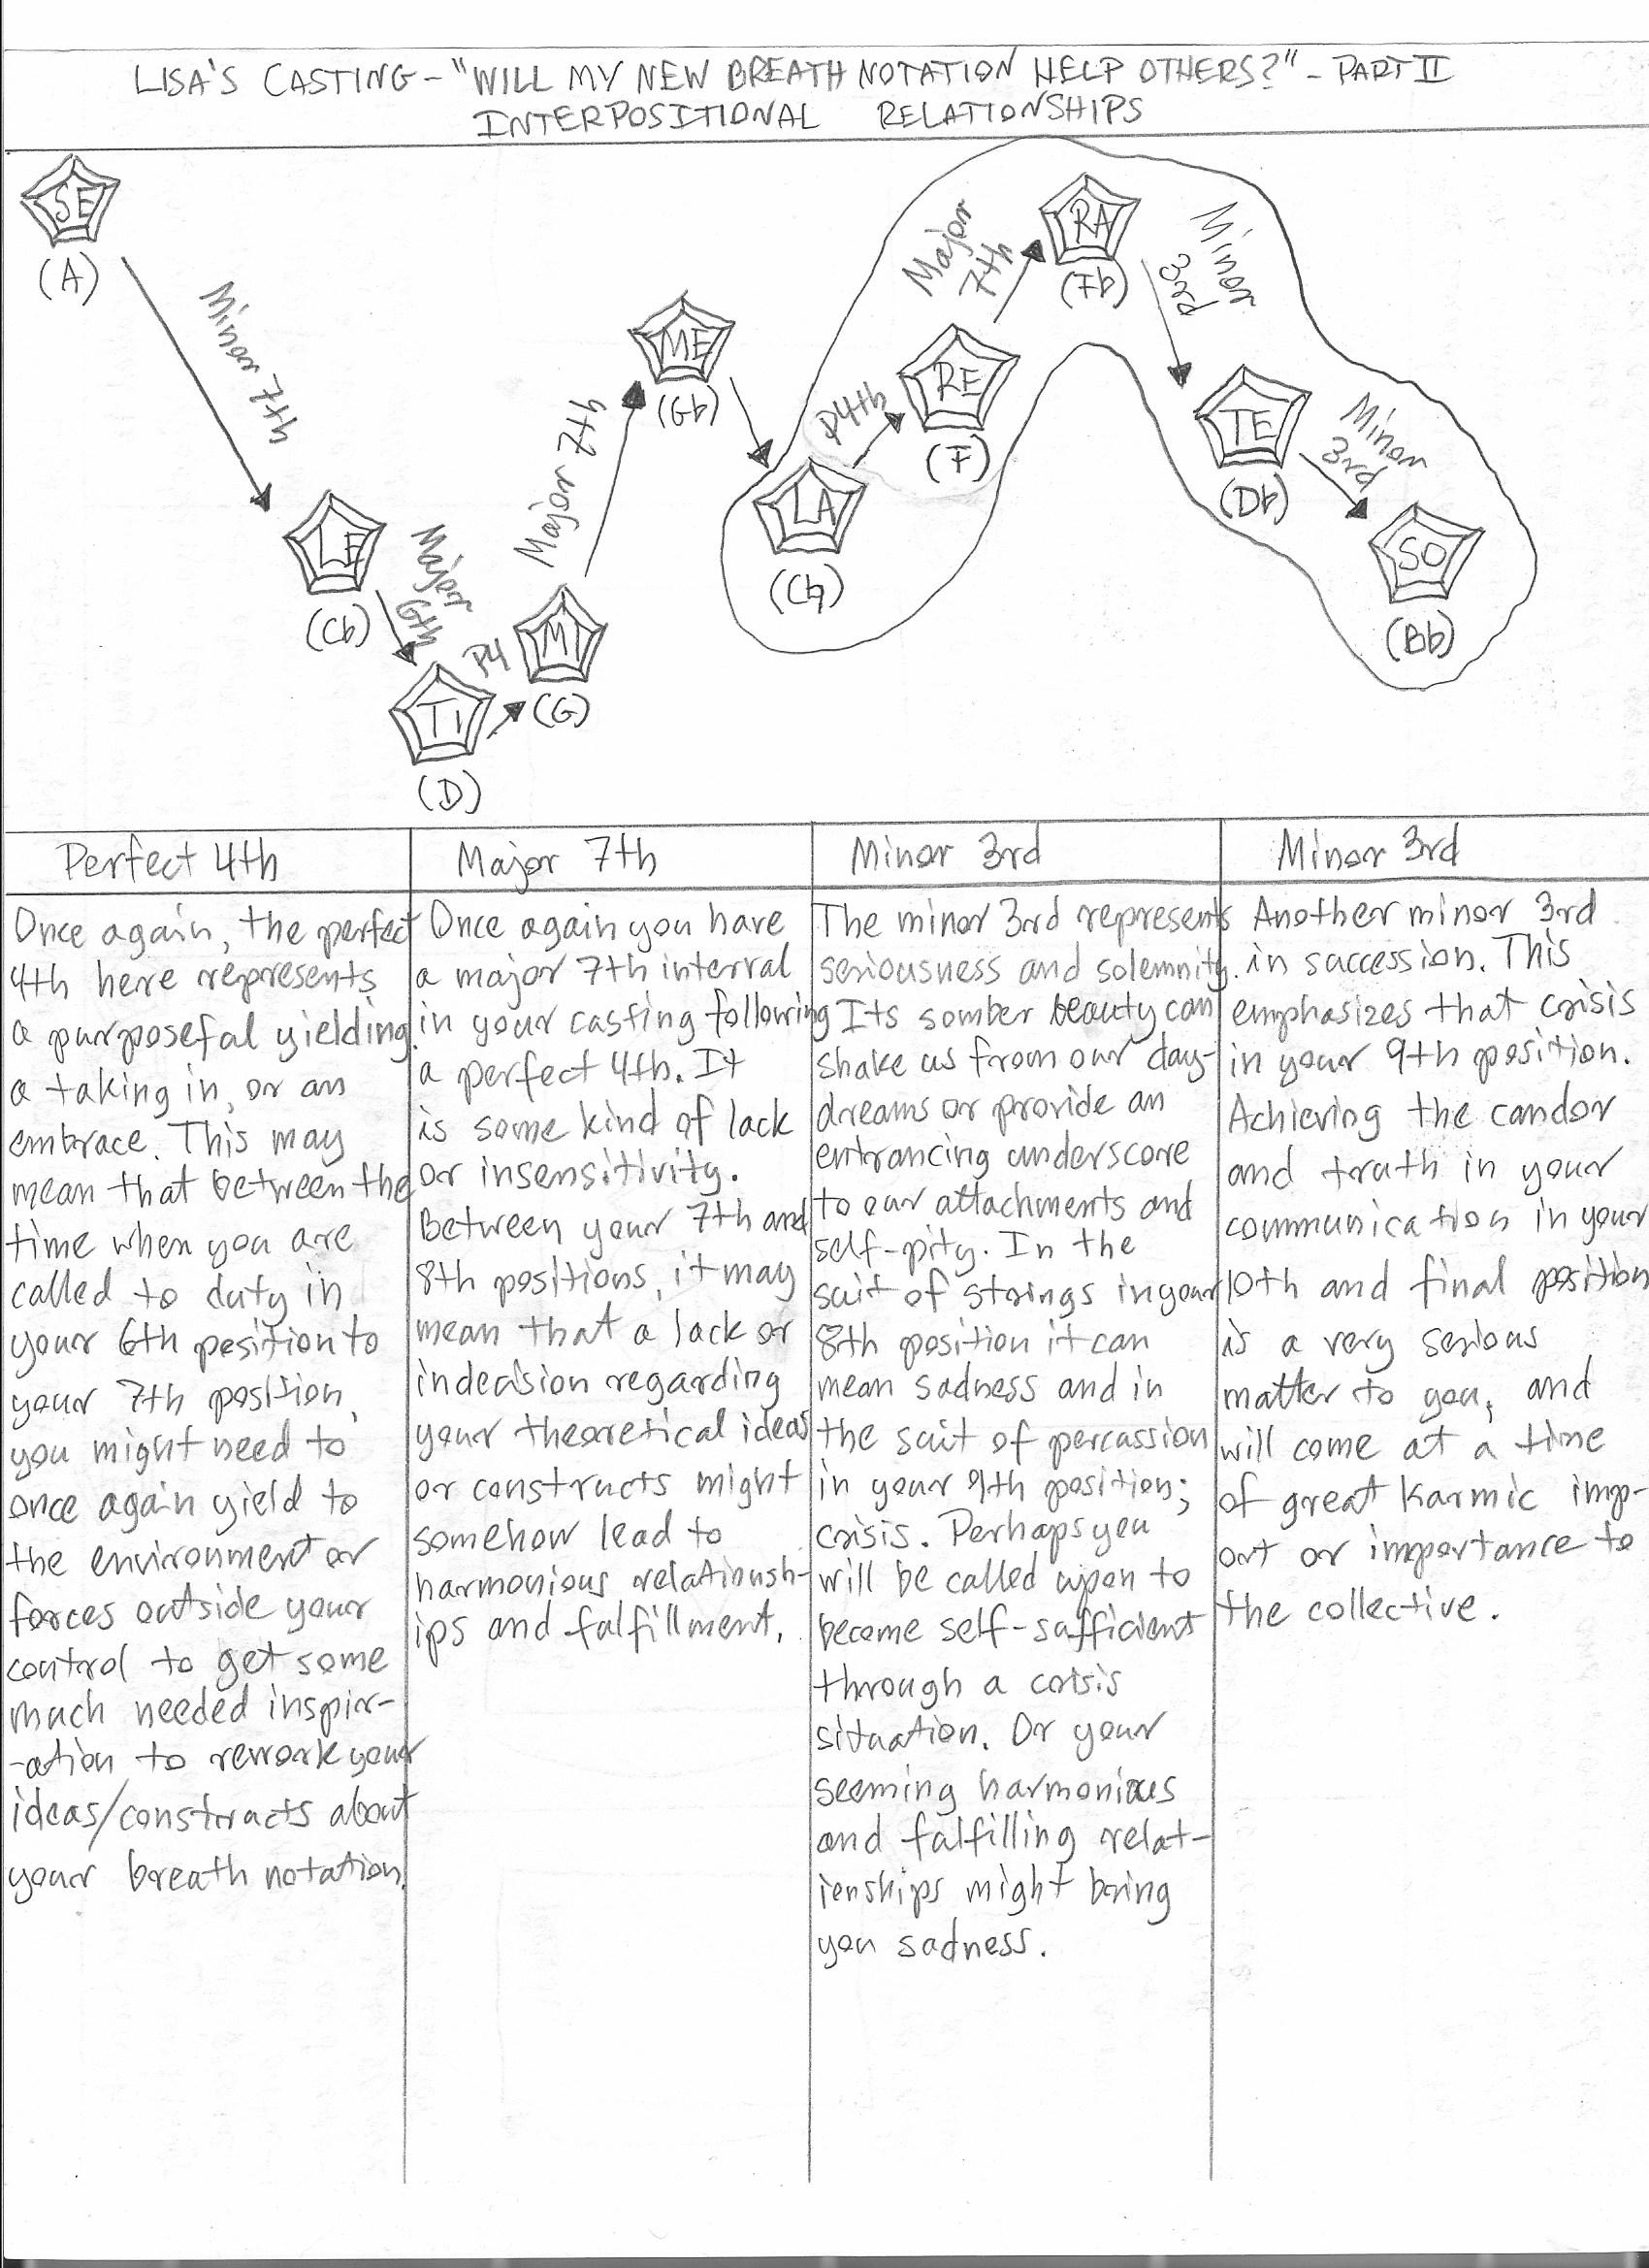 LISA'S CASTING - "WILL MY NEW BREATH NOTATION HELP OTHERS?" - PART II
INTERPOSITIONAL RELATIONSHIPS
SE
(A)
Minor 7th
LE
(Cb)
Major
6th
TI
(D)
P4
MI
(G)
Major 7th
ME
(Gb)
LA
(C♮)
P4th
RE
(F)
Major
7th
RA
(Fb)
Minor
3rd
TE
(Db)
Minor
3rd
SO
(Bb)
Perfect 4th
Once again, the perfect
4th here represents
a purposeful yielding
a taking in, or an
embrace. This may
mean that between the
time when you are
called to duty in
your 6th position to
your 7th position,
you might need to
once again yield to
the environment or
forces outside your
control to get some
much needed inspir-
-ation to rework your
ideas/constructs about
your breath notation.
Major 7th
Once again you have
a major 7th interval
in your casting following
a perfect 4th. It
is some kind of lack
or insensitivity.
Between your 7th and
8th positions, it may
mean that a lack or
indecision regarding
your theoretical ideas
or constructs might
somehow lead to
harmonious relationsh-
ips and fulfillment.
Minor 3rd
The minor 3rd represents
seriousness and solemnity.
Its somber beauty can
shake us from our day-
dreams or provide an
entrancing underscore
to our attachments and
self-pity. In the
suit of strings in your
8th position it can
mean sadness and in
the suit of percussion
in your 9th position;
crisis. Perhaps you
will be called upon to
become self-sufficient
through a crisis
situation. Or your
seeming harmonious
and fulfilling relat-
ionships might bring
you sadness.
Minor 3rd
Another minor 3rd
in succession. This
emphasizes that crisis
in your 9th position.
Achieving the candor
and truth in your
communication in your
10th and final position
is a very serious
matter to you, and
will come at a time
of great Karmic imp-
ort or importance to
the collective.